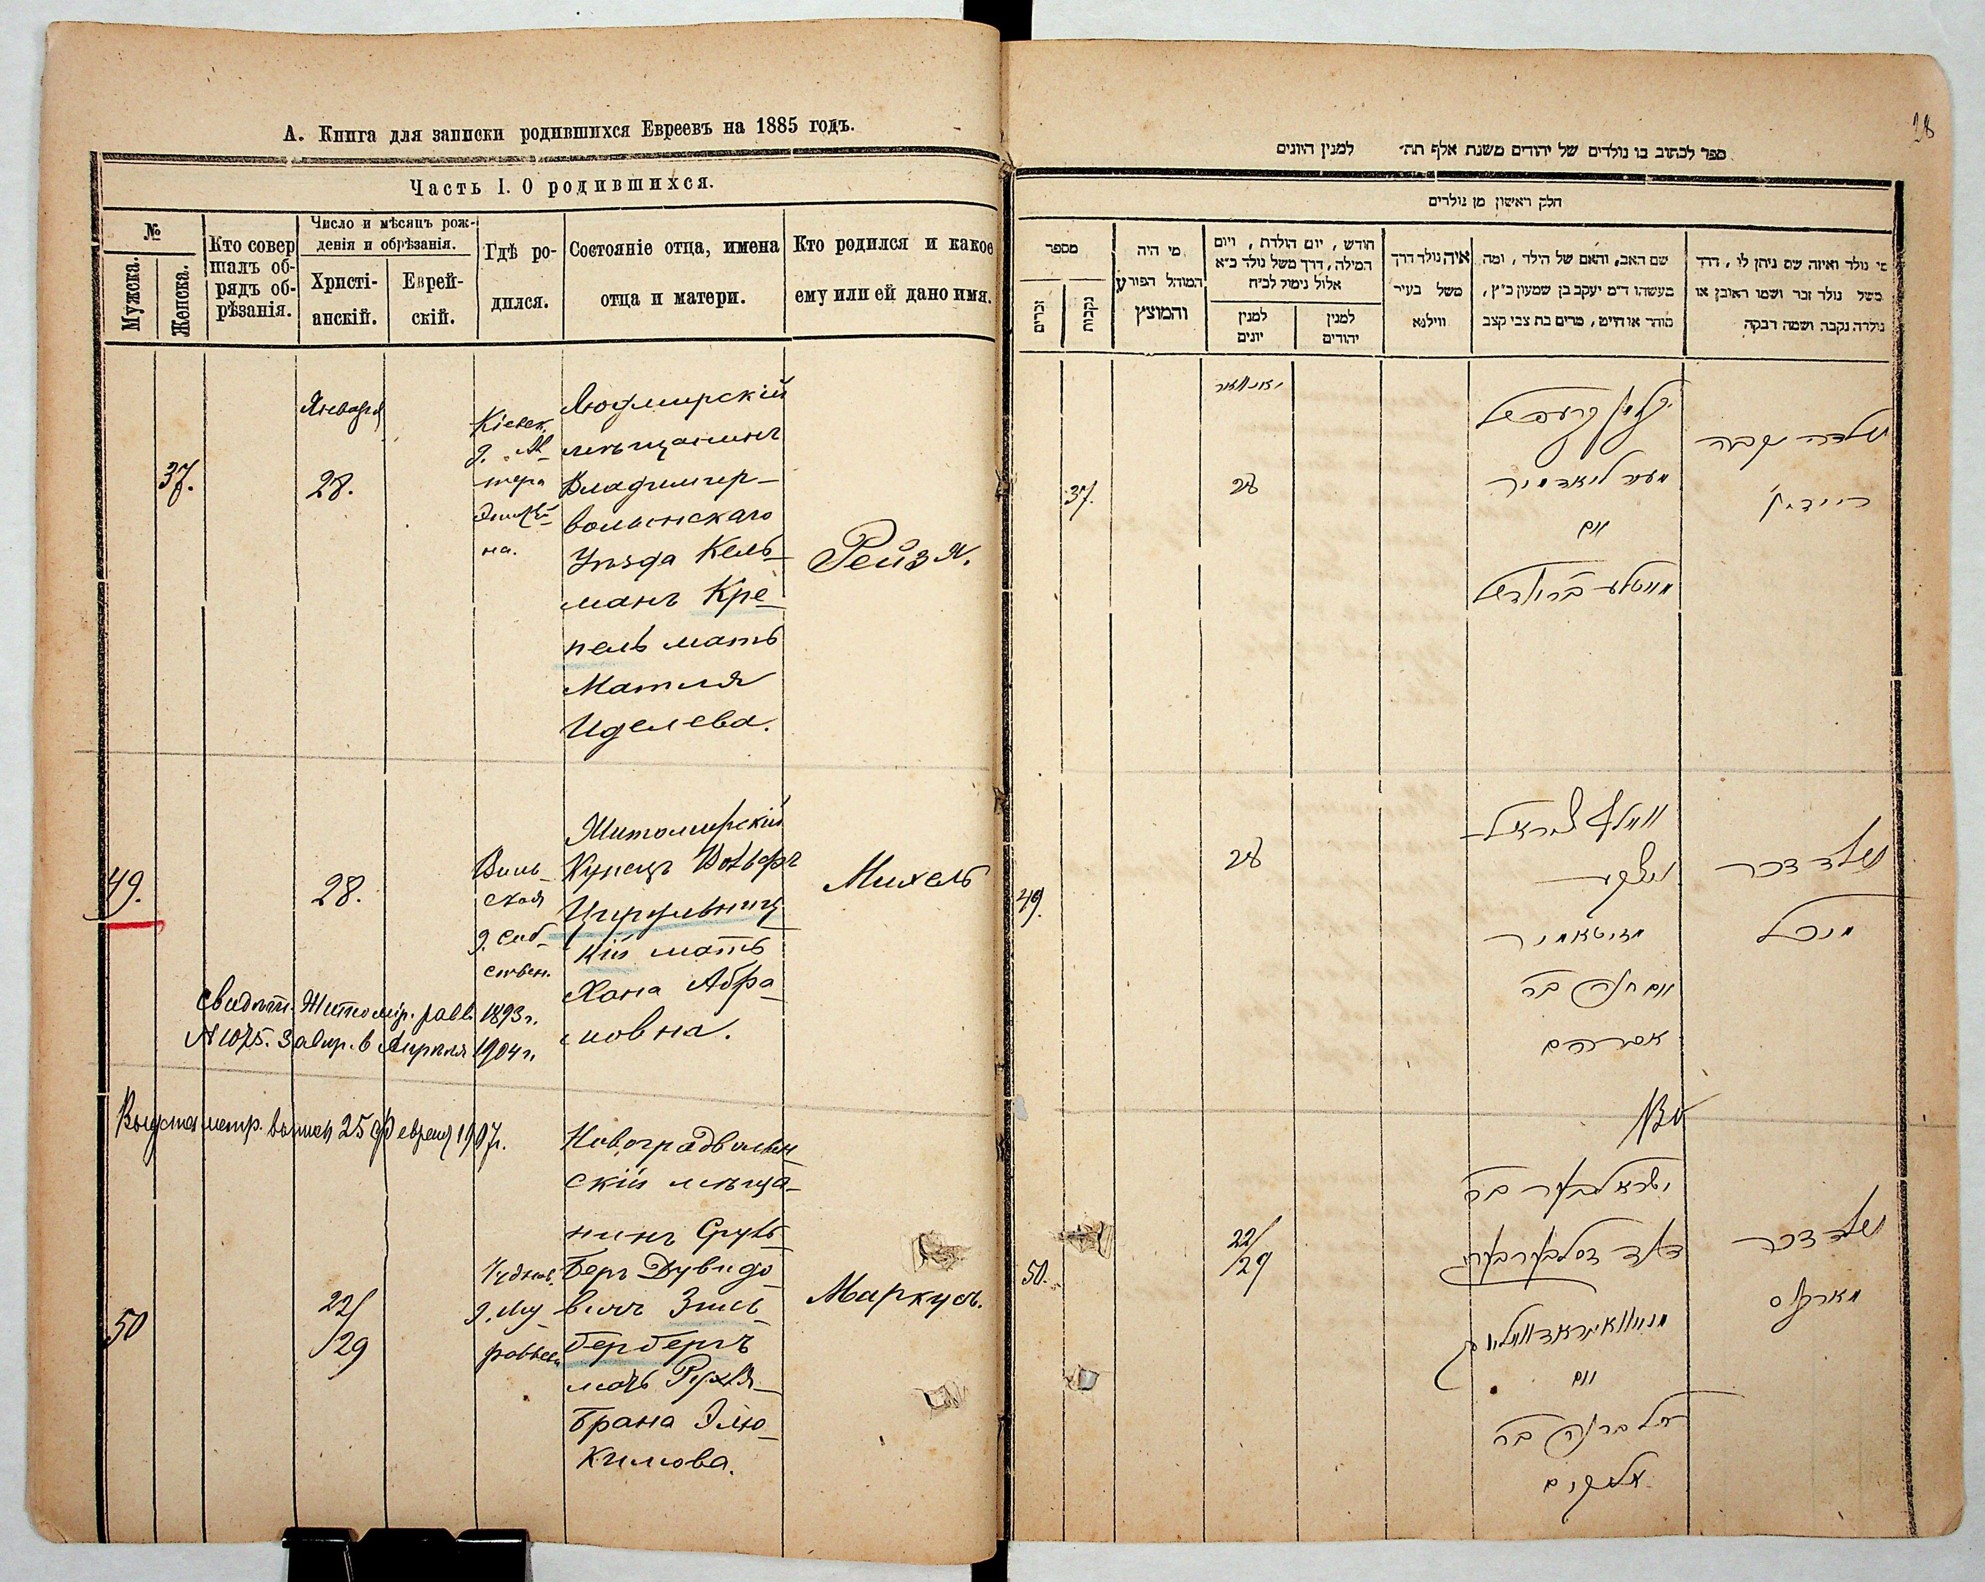 А. Книга для записки родившихся Евреевъ на 1885 годъ.
Часть I. О родившихся.
№
Мужска.
Женска.
Кто совер
шалъ об-
рядъ об-
рѣзанія.
Число и мѣсяцъ рож-
денія и обрѣзанія.
Христі-
анскій.
Еврей-
скій.
Гдѣ ро-
дился.
Состояніе отца, имена
отца и матери.
Кто родился и какое
ему или ей дано имя.
37.
Января
28.
Кіевск.
на.
мѣщанинъ
Владимир-
волынскаго
Уѣзда Кель-
манъ Кре-
пель мать
Матля
Иделева.
Рейзя.
49.
28.
Виль-
ская
д. соб-
ствен.
Житомирскій
Купецъ Вольфъ
Цирульниц
кій мать
Хана Абра-
мовна.
Михель
свидѣт. Житомір. равв. 1893 г.
№ 1075. Завир. 6 Апрѣля 1904 г.
метр. выпись 25 Февраля 1907 г.
50
22/
/29
Чуднов.
Новоградволын-
скій мѣща-
нинъ Сруль-
Беръ Дувидо-
вичъ Зиль-
бербергъ
мать Рухля-
Брана Элю-
кимова.
Маркусъ.
28
ספר לכתוב בו נולדים של יהודים משנת אלף תת״ למנין היונים
חלק ראשון מן נולדים
מספר
זכרים
נקבות
מי היה
המוהל הפורע
והמוציץ
חודש, יום הולדת, ויום
המילה, דרך משל נולד כ״א
אלול נימול לכ״ח
למנין
יונים
למנין
יהודים
איה נולד דרך
משל בעיר
ווילנא
שם האב, והאם של הילד, ומה
מעשהו ד״מ יעקב בן שמעון כ״ץ,
סוחר או חייט, מרים בת צבי קצב
מי נולד ואיזה שם ניתן לו, דרך
משל נולד זכר ושמו ראובן או
נולדה נקבה ושמה רבקה
37.
יאנוואר
28
ואם
נולדה נקבה
49.
28
זיטאמיר
ואם חנה בת
אברהם
נולד זכר
מיכל
50.
22/
/29
ישראל בער בר
דוד זילבערבערג
ואם
רחל בראנה בת
אליקים
נולד זכר
מארקוס